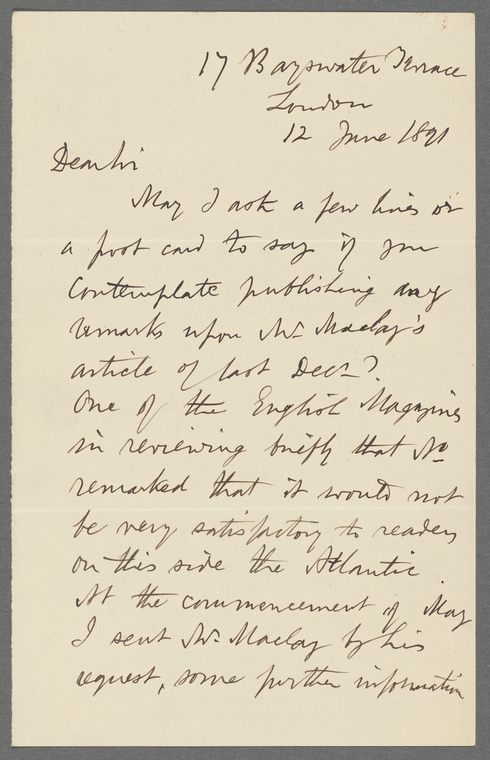 17 Bayswater Terrace
London
12 June 1891
Dear Sir
May I ask a few lines or
a post card to say if you
contemplate publishing any
remarks upon Mr. Maclay's
article of last Decr.?
One of the English Magazines
in reviewing briefly that No
remarked that it would not
be very satisfactory to readers
on this side the Atlantic.
At the commencement of May
I sent Mr. Maclay by his
request, some further information